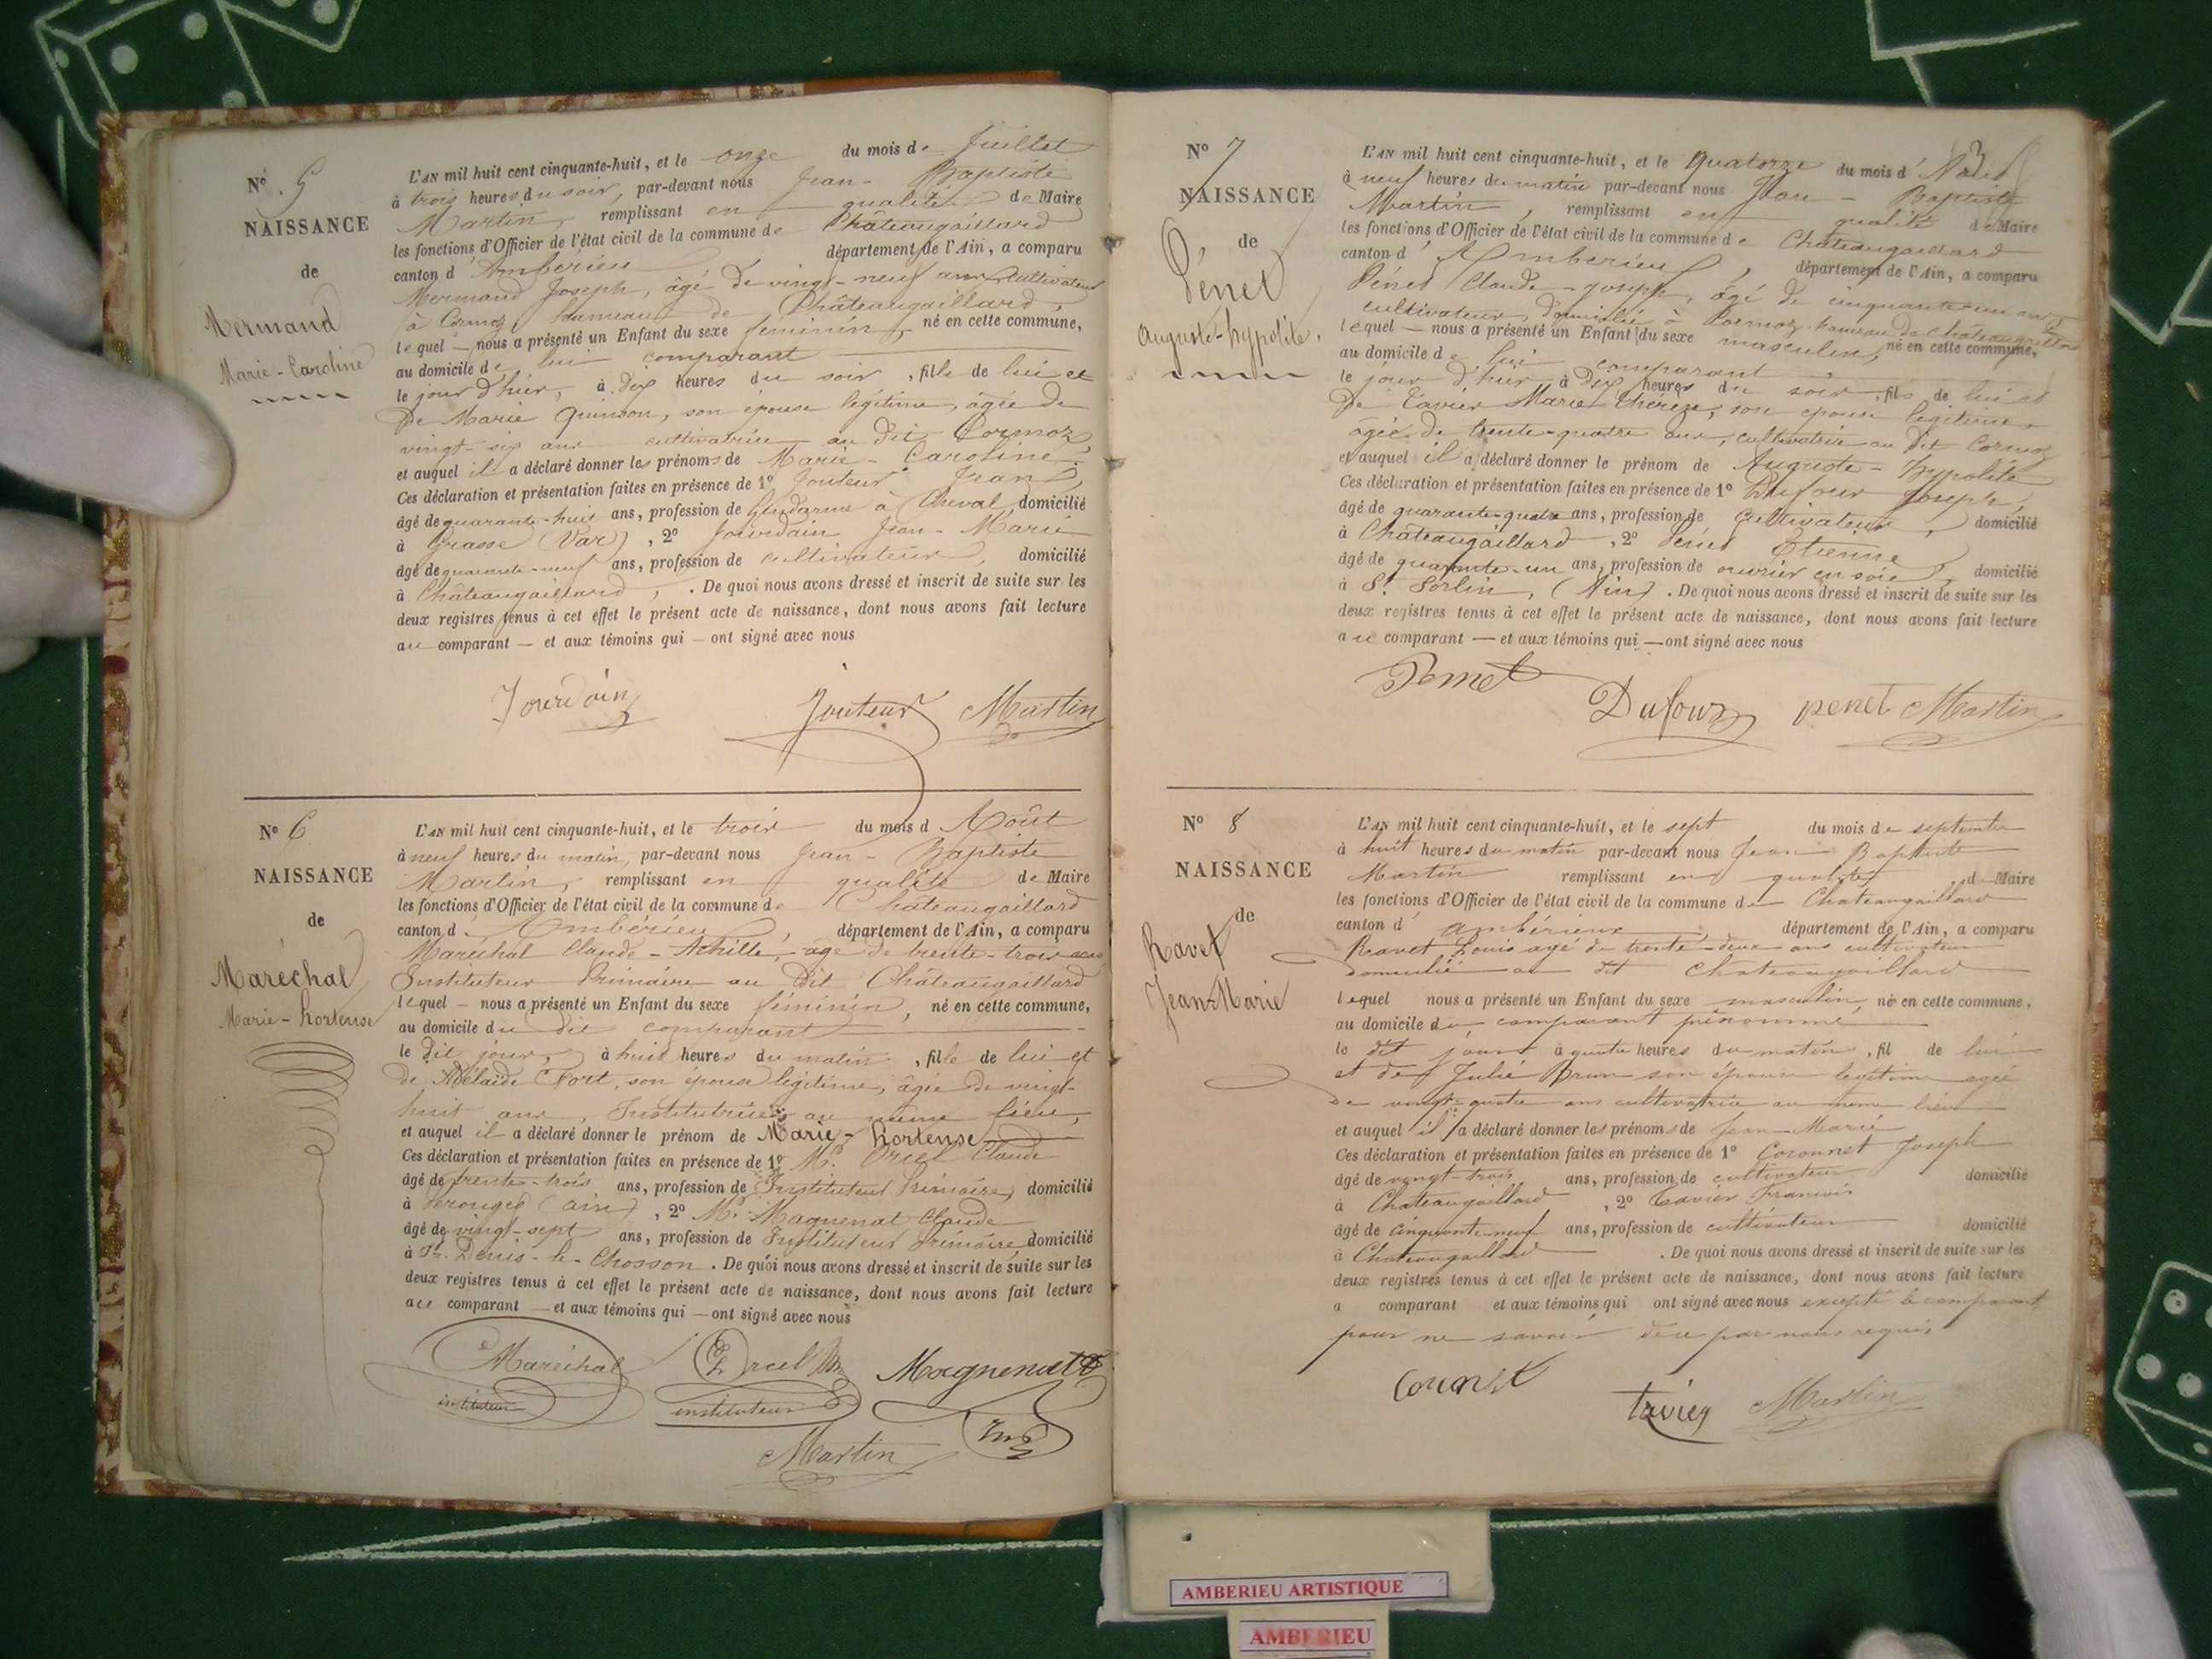 Nº 5
NAISSANCE
de
Mermand
Marie-Caroline
L'AN mil huit cent cinquante-huit, et le onze du mois de Juillet
à trois heures du soir, par-devant nous Jean-Baptiste
Martin, remplissant en qualité de Maire
les fonctions d'Officier de l'état civil de la commune de Châteaugaillard
canton d'Ambérieu département de l'Ain, a comparu
Mermand Joseph, âgé de vingt-neuf ans, cultivateur
à Cormoz hameau de Châteaugaillard,
lequel — nous a présenté un Enfant du sexe féminin, né en cette commune,
au domicile de lui comparant
le jour d'hier, à dix heures du soir, fille de lui et
de Marie Quinson, son épouse légitime, âgée de
vingt-six ans cultivatrice au dit Cormoz,
et auquel il a déclaré donner les prénoms de Marie-Caroline.
Ces déclaration et présentation faites en présence de 1º Jouteur Jean,
âgé de quarante-huit ans, profession de Gendarme à Cheval, domicilié
à Grasse (Var), 2º Jourdain Jean-Marie
âgé de quarante-neuf ans, profession de cultivateur, domicilié
à Châteaugaillard, . De quoi nous avons dressé et inscrit de suite sur les
deux registres tenus à cet effet le présent acte de naissance, dont nous avons fait lecture
au comparant — et aux témoins qui — ont signé avec nous
Jourdain Jouteur Martin
Nº 6
NAISSANCE
de
Maréchal
Marie-hortense
L'AN mil huit cent cinquante-huit, et le trois du mois d'Août
à neuf heures du matin, par-devant nous Jean-Baptiste
Martin, remplissant en qualité de Maire
les fonctions d'Officier de l'état civil de la commune de Châteaugaillard
canton d'Ambérieu, département de l'Ain, a comparu
Maréchal Claude-Achille, âgé de trente-trois ans
Instituteur Primaire au dit Châteaugaillard
lequel — nous a présenté un Enfant du sexe féminin, né en cette commune,
au domicile du dit comparant
le dit jour, à huit heures du matin, fille de lui et
de Adélaïde Fort, son épouse légitime, âgée de vingt-
huit ans, Institutrice au même lieu,
et auquel il a déclaré donner le prénom de Marie-hortense
Ces déclaration et présentation faites en présence de 1º Mr. Orcel Claude
âgé de trente-trois ans, profession de Instituteur Primaire, domicilié
à Pérouges (ain), 2º Mr. Magnenat Claude
âgé de vingt-sept ans, profession de Instituteur Primaire domicilié
à St. Denis-le-Chosson. De quoi nous avons dressé et inscrit de suite sur les
deux registres tenus à cet effet le présent acte de naissance, dont nous avons fait lecture
au comparant — et aux témoins qui — ont signé avec nous
Maréchal Orcel Magnenat
instituteur instituteur
Martin
Nº 7
NAISSANCE
de
Pénet
Auguste-hypolite.
L'AN mil huit cent cinquante-huit, et le Quatorze du mois d'Août
à neuf heures du matin par-devant nous Jean-Baptiste
Martin, remplissant en qualité de Maire
les fonctions d'Officier de l'état civil de la commune de Châteaugaillard
canton d'Ambérieu, département de l'Ain, a comparu
Pénet Claude-joseph, âgé de cinquante-un ans
cultivateur, domicilié à Cormoz hameau de châteaugaillard
lequel — nous a présenté un Enfant du sexe masculin, né en cette commune,
au domicile de lui comparant,
le jour d'hier à dix heures du soir, fils de lui et
de Tavier Marie Thérèze, son épouse légitime,
âgée de trente-quatre ans, cultivatrice au dit Cormoz
et auquel il a déclaré donner le prénom de Auguste-hypolite
Ces déclaration et présentation faites en présence de 1º Dufour Joseph,
âgé de quarante-quatre ans, profession de Cultivateur, domicilié
à Châteaugaillard, 2º Pénet Etienne
âgé de quarante-un ans, profession de ouvrier en soie, domicilié
à St. Sorlin, (Ain). De quoi nous avons dressé et inscrit de suite sur les
deux registres tenus à cet effet le présent acte de naissance, dont nous avons fait lecture
au comparant — et aux témoins qui — ont signé avec nous
Penet Dufour penet Martin
Nº 8
NAISSANCE
de
Ravet
Jean-Marie
L'AN mil huit cent cinquante-huit, et le sept du mois de septembre
à huit heures du matin par-devant nous Jean Baptiste
Martin remplissant en qualité de Maire
les fonctions d'Officier de l'état civil de la commune de Chateaugaillard
canton d'ambérieux, département de l'Ain, a comparu
Ravet Louis agé de trente-deux ans cultivateur
domicilié au dit Chateaugaillard
lequel nous a présenté un Enfant du sexe masculin, né en cette commune,
au domicile du comparant prénommé
le dit jour à quatre heures du matin, fil de lui
et de Julie Brun son épouse legitime agée
de vingt-quatre ans cultivatrice au meme lieu
et auquel il a déclaré donner les prénoms de Jean-Marie
Ces déclaration et présentation faites en présence de 1º Coronnet Joseph
âgé de vingt-trois ans, profession de cultivateur domicilié
à Chateaugaillard, 2º Tavier Francois
âgé de cinquante-neuf ans, profession de cultivateur domicilié
à Chateaugaillard. De quoi nous avons dressé et inscrit de suite sur les
deux registres tenus à cet effet le présent acte de naissance, dont nous avons fait lecture
a comparant et aux témoins qui ont signé avec nous excepté le comparant
pour ne savoir de ce par nous requis
tavier Martin
AMBERIEU ARTISTIQUE
AMBERIEU